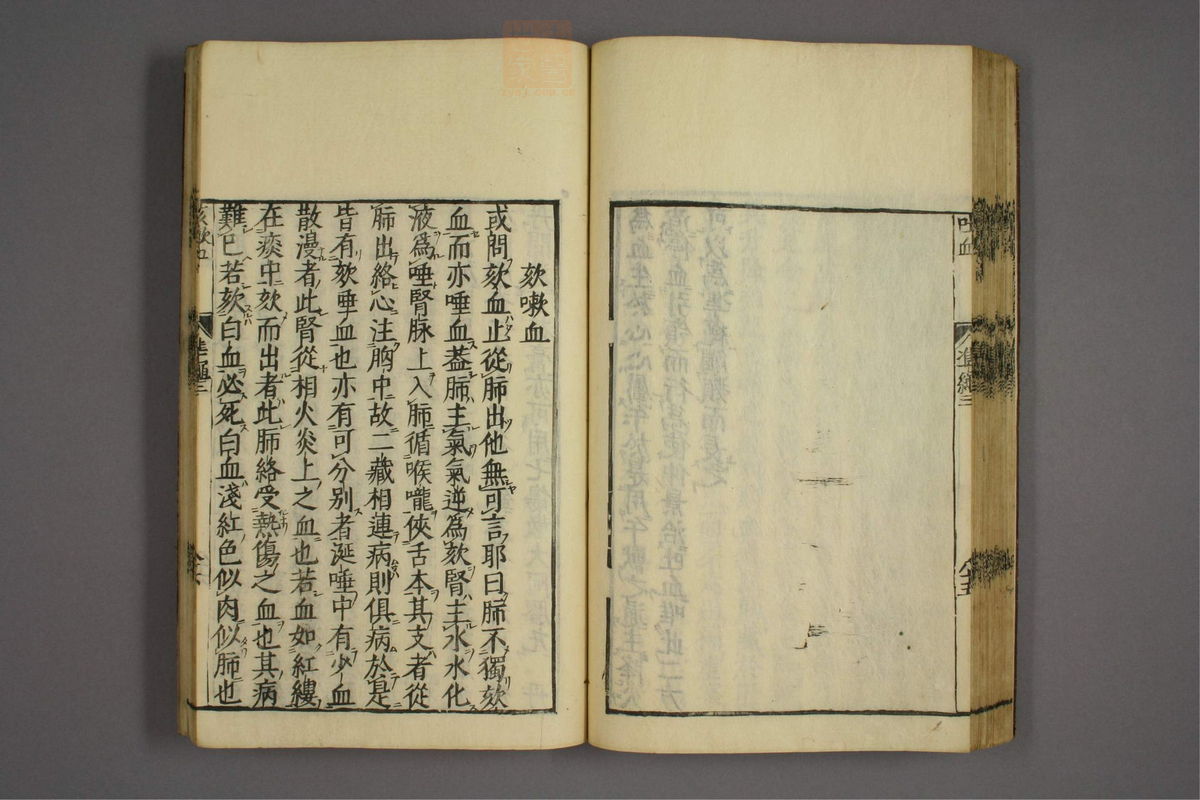 吐血
準繩三
八十五
欬嗽血
或問欬血止從肺出他無可言耶曰肺不獨欬
血而亦唾血葢肺主氣氣逆爲欬腎主水水化
液爲唾腎脉上入肺循喉嚨俠舌本其支者從
肺出絡心注胸中故二藏相連病則俱病於是
皆有欬唾血也亦有可分别者涎唾中有少血
散漫者此腎從相火炎上之血也若血如紅縷
在痰中欬而出者此肺絡受熱傷之血也其病
難已若欬白血必死白血淺紅色似肉似肺也